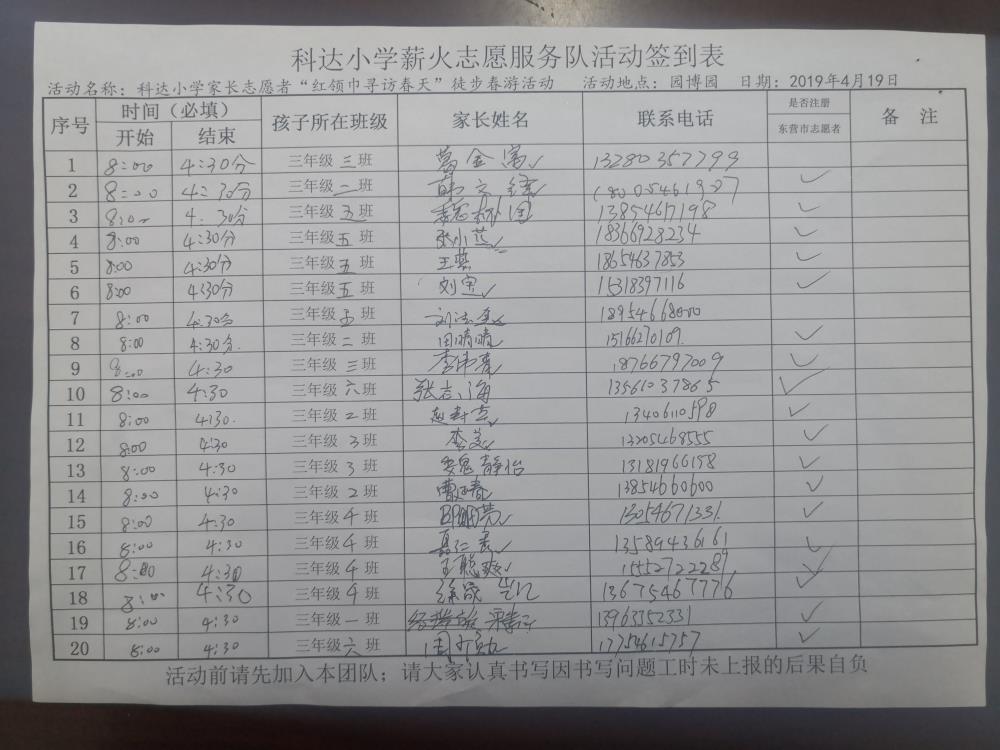 科达小学薪火志愿服务队活动签到表
活动名称：科达小学家长志愿者“红领巾寻访春天”徒步春游活动 活动地点：园博园 日期：2019年4月19日
序号 时间（必填） 孩子所在班级 家长姓名 联系电话 是否注册 备 注
开始 结束 东营市志愿者
1 8:00 4:30分 三年级 三班 葛金富 13280357799
2 8:00 4:30分 三年级 一班 18005461907 ✓
3 8:00 4:30分 三年级 五班 13854617198 ✓
4 8:00 4:30分 三年级 五班 张小燕 18366928234 ✓
5 8:00 4:30分 三年级 五班 18654637853 ✓
6 8:00 4:30分 三年级 五班 15318397116 ✓
7 8:00 4:30分 三年级 五班 18954668000
8 8:00 4:30分. 三年级 二班 田晴晴 15166270109. ✓
9 8:00 4:30 三年级 三班 18766797009 ✓
10 8:00 4:30 三年级 六班 张志海 13561037865 ✓
11 8:00 4:30. 三年级 2班 13406110598 ✓
12 8:00 4:30 三年级 3班 李美 13205468555 ✓
13 8:00 4:30 三年级 3班 魏静怡 13181966158 ✓
14 8:00 4:30 三年级 2班 13854660600 ✓
15 8:00 4:30 三年级 4班 15054671331. ✓
16 8:00 4:30 三年级 4班 13589436161 ✓
17 8:00 4:30 三年级 4班 王聪爽 15552722289 ✓
18 8:00 4:30 三年级 4班 13675467776 ✓
19 8:00 4:30 三年级 一班 13963352331 ✓
20 8:00 4:30 三年级 六班 17754615757 ✓
活动前请先加入本团队；请大家认真书写因书写问题工时未上报的后果自负